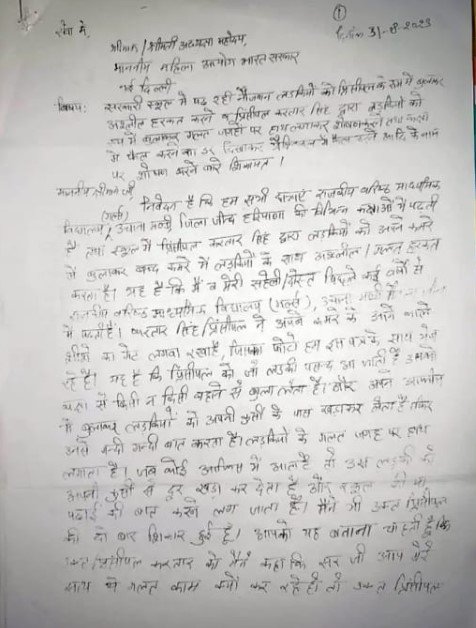 ①
सेवा में,
दिनांक 31-8-2023
श्रीमान/श्रीमती अध्यक्षा महोदय,
माननीय महिला आयोग भारत सरकार
नई दिल्ली
विषय: सरकारी स्कूल में पढ़ रही नौजवान लड़कियों को प्रिंसिपल के रूम में बुलाकर
अश्लील हरकत करने व प्रिंसिपल करतार सिंह द्वारा लड़कियों को
रूम में बुलाकर गलत जगहों पर हाथ लगाकर शोषण करने तथा
में फेल करने का डर दिखाकर आदि के नाम
पर शोषण करने बारे शिकायत।
माननीय श्रीमान जी,
निवेदन है कि हम सभी छात्राएं राजकीय वरिष्ठ माध्यमिक
विद्यालय (गर्ल्स), उचाना मण्डी, जिला जीन्द हरियाणा की विभिन्न कक्षाओं में पढ़ती
हैं तथा स्कूल में प्रिंसिपल करतार सिंह द्वारा लड़कियों को अपने कमरे
में बुलाकर बन्द कमरे में लड़कियों के साथ अश्लील / गलत हरकत
करता है। यह है कि मैं व मेरी सहेली/दोस्त पिछले कई वर्षों से
राजकीय वरिष्ठ माध्यमिक विद्यालय (गर्ल्स), उचाना मण्डी
में पढ़ती हैं। करतार सिंह/प्रिंसिपल ने अपने कमरे के आगे काले
शीशे का गेट लगवा रखा है, जिसका फोटो हम इस पत्र के साथ भेज
रहे हैं। यह है कि प्रिंसिपल को जो लड़की पसन्द आ जाती है उसको
कक्षा से किसी न किसी बहाने से बुला लेता है। और अपने आफिस
में बुलाकर लड़कियों को अपनी कुर्सी के पास खड़ा कर लेता है फिर
उनसे गन्दी गन्दी बात करता है। लड़कियों के गलत जगह पर हाथ
लगाता है। जब कोई आफिस में आता है तो उस लड़की को
अपनी कुर्सी से दूर खड़ा कर देता है और स्कूल की या
पढ़ाई की बात करने लग जाता है। मैं भी उक्त प्रिंसिपल
की दो बार शिकार हुई हूं। आपको यह बताना चाहती हूं कि
उक्त प्रिंसिपल करतार को मैंने कहा कि सर जी आप मेरे
साथ ये गलत काम क्यों कर रहे हो तो उक्त प्रिंसिपल